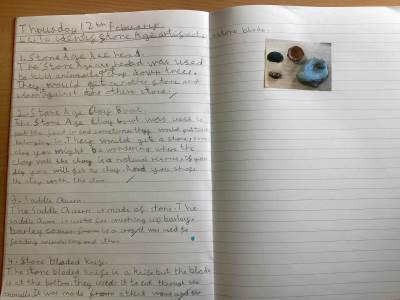 Thursday 12th February
L.I: to identify Stone Age artifacts
1. Stone Age Axe head.
The Stone Age axe headed was used
to kill animals or chop down trees.
They would get another stone and
against the other stone.
2. Stone Age Clay Bowl.
The Stone Age Clay bowl was used to
put the food in and sometimes they would put
belonging in. They would get a stone
clay you might be wondering where the
clay was the clay is a natural if you
dig you will get the clay. And you shape
the clay with the
3. Saddle Quern.
The Saddle Quern is made of stone. The
Saddle Quern is used for crushing up barley.
barley is a was used to
feeding animals and
4. Stone bladed knife.
The stone bladed knife is a knife but the blade
is at the bottom. They used it to cut through the
animals it was made from a thick wood and the
stone blade.